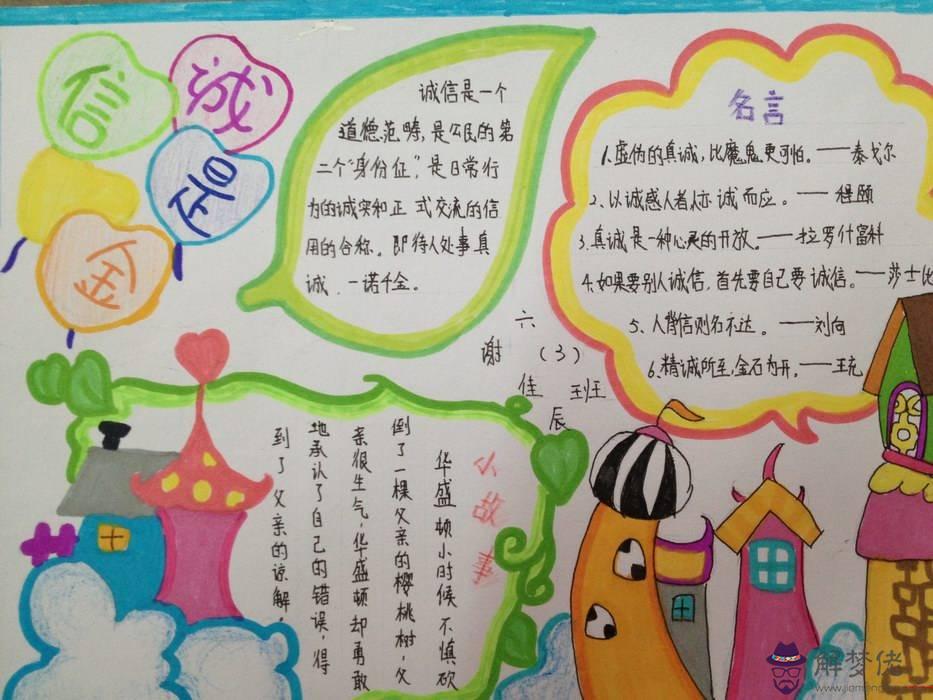 诚
信
是
金
诚信是一个
道德范畴,是公民的第
二个"身份证",是日常行
为的诚实和正式交流的信
用的合称。即待人处事真
诚、一诺千金。
名言
1.虚伪的真诚,比魔鬼更可怕。——泰戈尔
2、以诚感人者人亦诚而应。——程颐
3.真诚是一种心灵的开放。——拉罗什富科
4.如果要别人诚信,首先要自己要诚信。——莎士比
5、人背信则名不达。——刘向
6.精诚所至,金石为开。——王充
六(3)班
谢佳辰
小故事
华盛顿小时候不慎砍
倒了一棵父亲的樱桃树,父
亲很生气,华盛顿却勇敢
地承认了自己的错误,得
到了父亲的谅解。
解梦佬